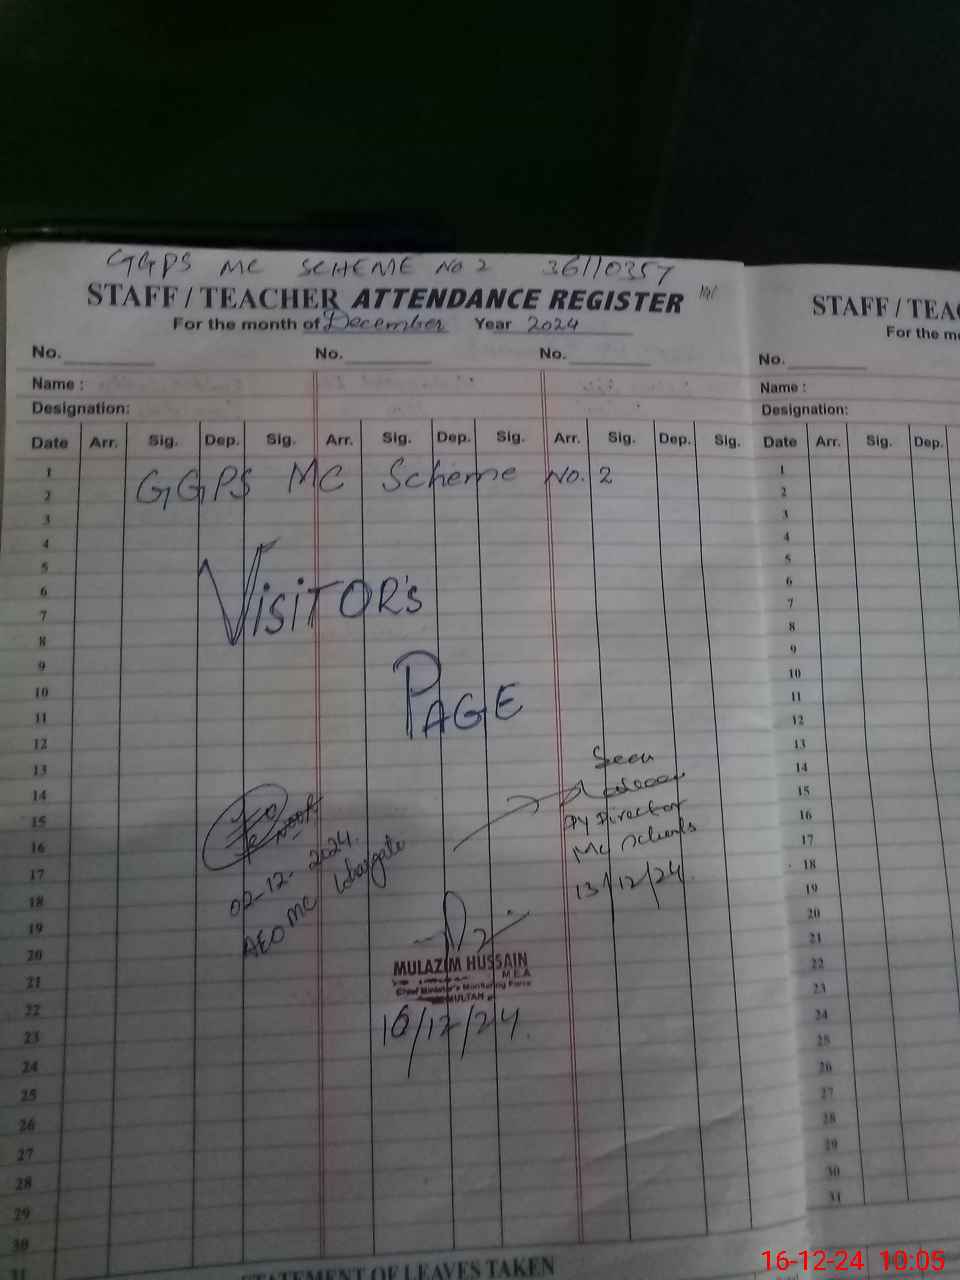 GGPS MC SCHEME No 2 36110357
STAFF / TEACHER ATTENDANCE REGISTER
For the month of December Year 2024
No. No. No.
Name :
Designation:
Date Arr. Sig. Dep. Sig. Arr. Sig. Dep. Sig. Arr. Sig. Dep. Sig.
GGPS MC Scheme No. 2
1
2
3
4
5
6
7
8
9
10
11
12
13
14
15
16
17
18
19
20
21
22
23
24
25
26
27
28
29
30
31
VISITOR'S
PAGE
02-12-2024.
AEO MC
Seen
Dy Director
MC Schools
13/12/24
MULAZIM HUSSAIN
M.E.A
Chief Minister's Monitoring Force
MULTAN
16/12/24
STATEMENT OF LEAVES TAKEN
STAFF / TEA
For the m
No.
Name :
Designation:
Date Arr. Sig. Dep.
1
2
3
4
5
6
7
8
9
10
11
12
13
14
15
16
17
18
19
20
21
22
23
24
25
26
27
28
29
30
31
16-12-24 10:05